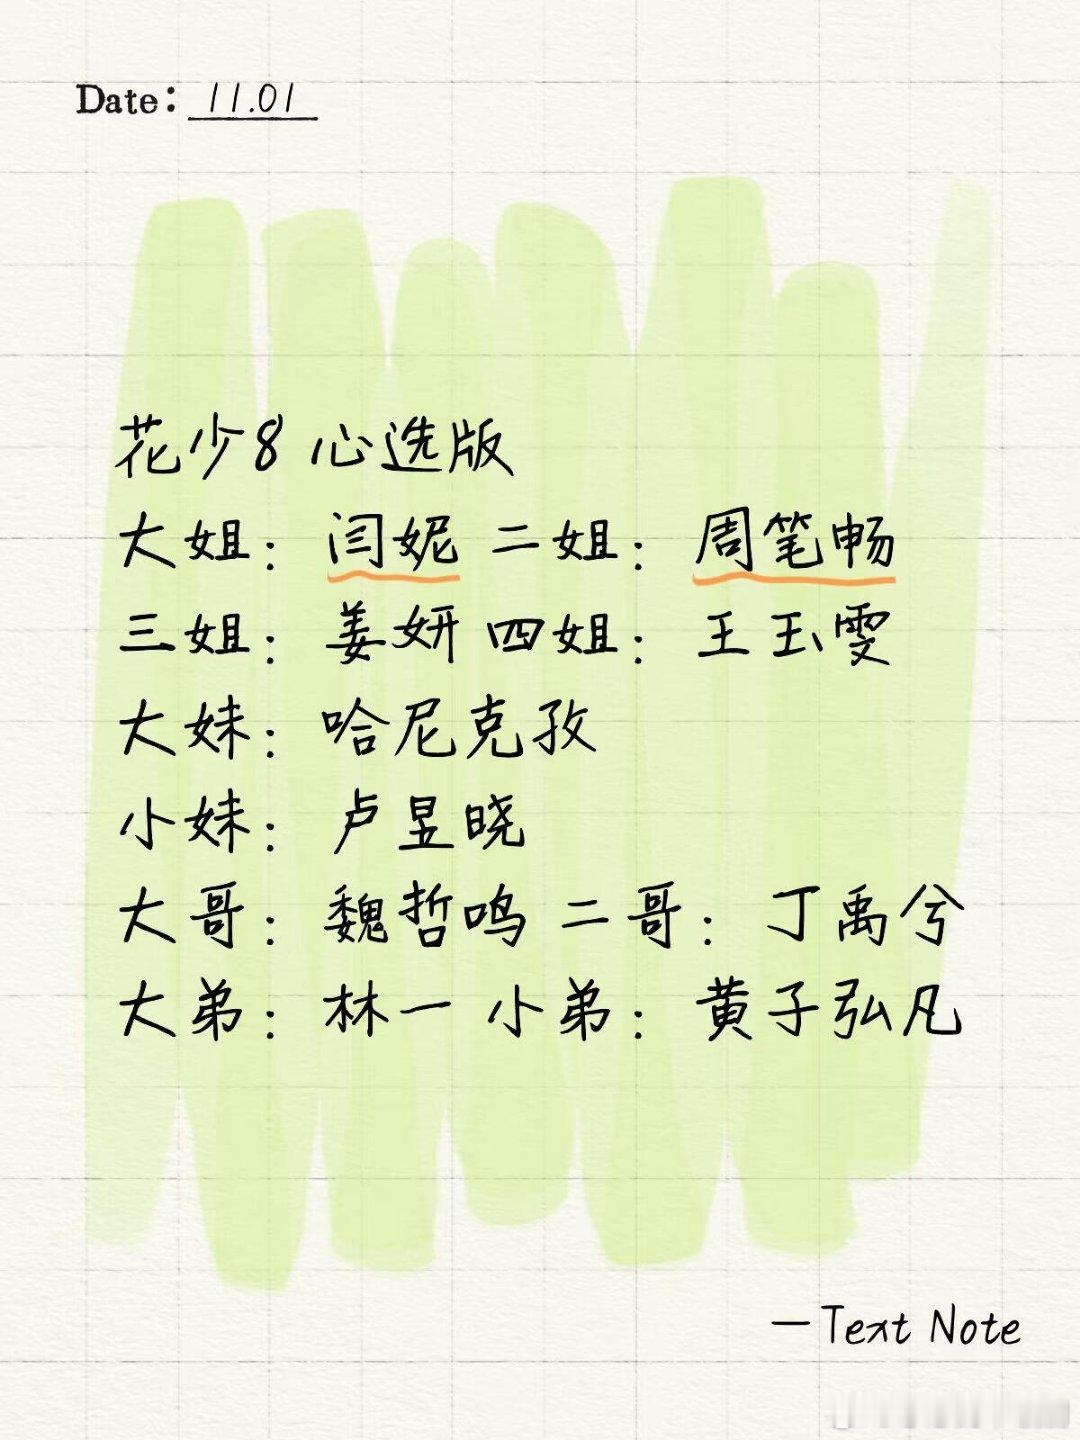 Date: 11.01
花少8 心选版
大姐：闫妮 二姐：周笔畅
三姐：姜妍 四姐：王玉雯
大妹：哈尼克孜
小妹：卢昱晓
大哥：魏哲鸣 二哥：丁禹兮
大弟：林一 小弟：黄子弘凡
—Text Note